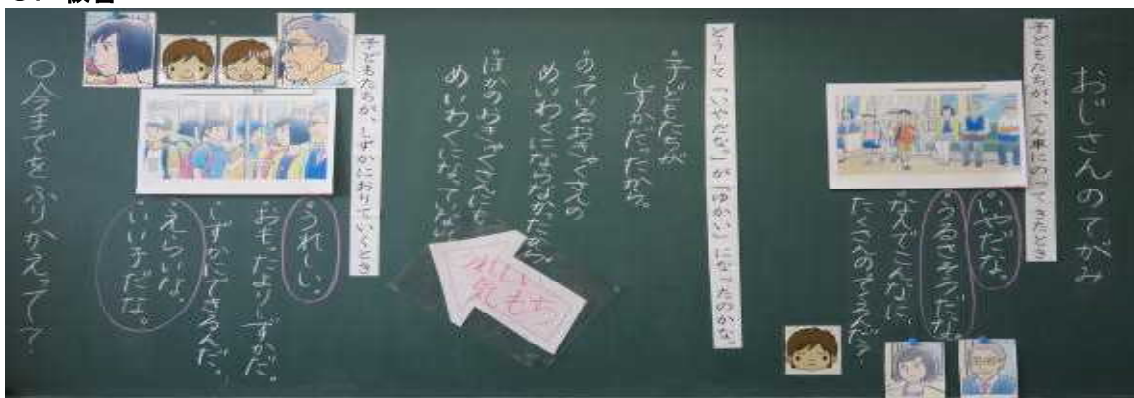 おじさんのてがみ
子どもたちが、でん車にのってきたとき
いやだな。
うるさそうだな。
なんでこんなに、
たくさんのってくるんだ?
どうして「いやだな。」が「ゆかい」になったのかな。
子どもたちが
しずかだったから。
のっているおきゃくさんの
めいわくにならなかったから。
ほかのおきゃくさんたちも
めいわくになっていない
気もち
子どもたちが、しずかにおりていくとき
うれしい。
おもったよりしずかだ。
しずかにできるんだ。
えらいな。
いい子だな。
○今までをふりかえって?